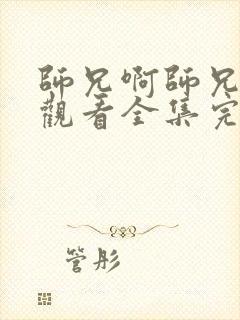 師兄啊師兄
觀看全集完
管彤